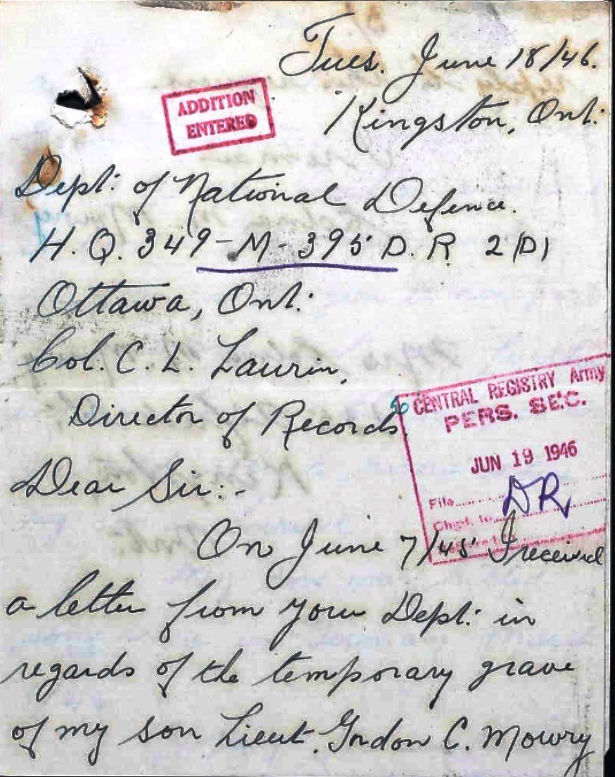 Tues. June 18/46.
Kingston, Ont:
ADDITION
ENTERED
Dept: of National Defence.
H.Q. 349-M-395 D.R. 2(D)
Ottawa, Ont:
Col. C. L. Laurin,
Director of Records
CENTRAL REGISTRY Army
PERS. SEC.
JUN 19 1946
File
DR
Dear Sir:-
On June 7/45 I received
a letter from your Dept: in
regards of the temporary grave
of my son Lieut. Gordon C. Mowry